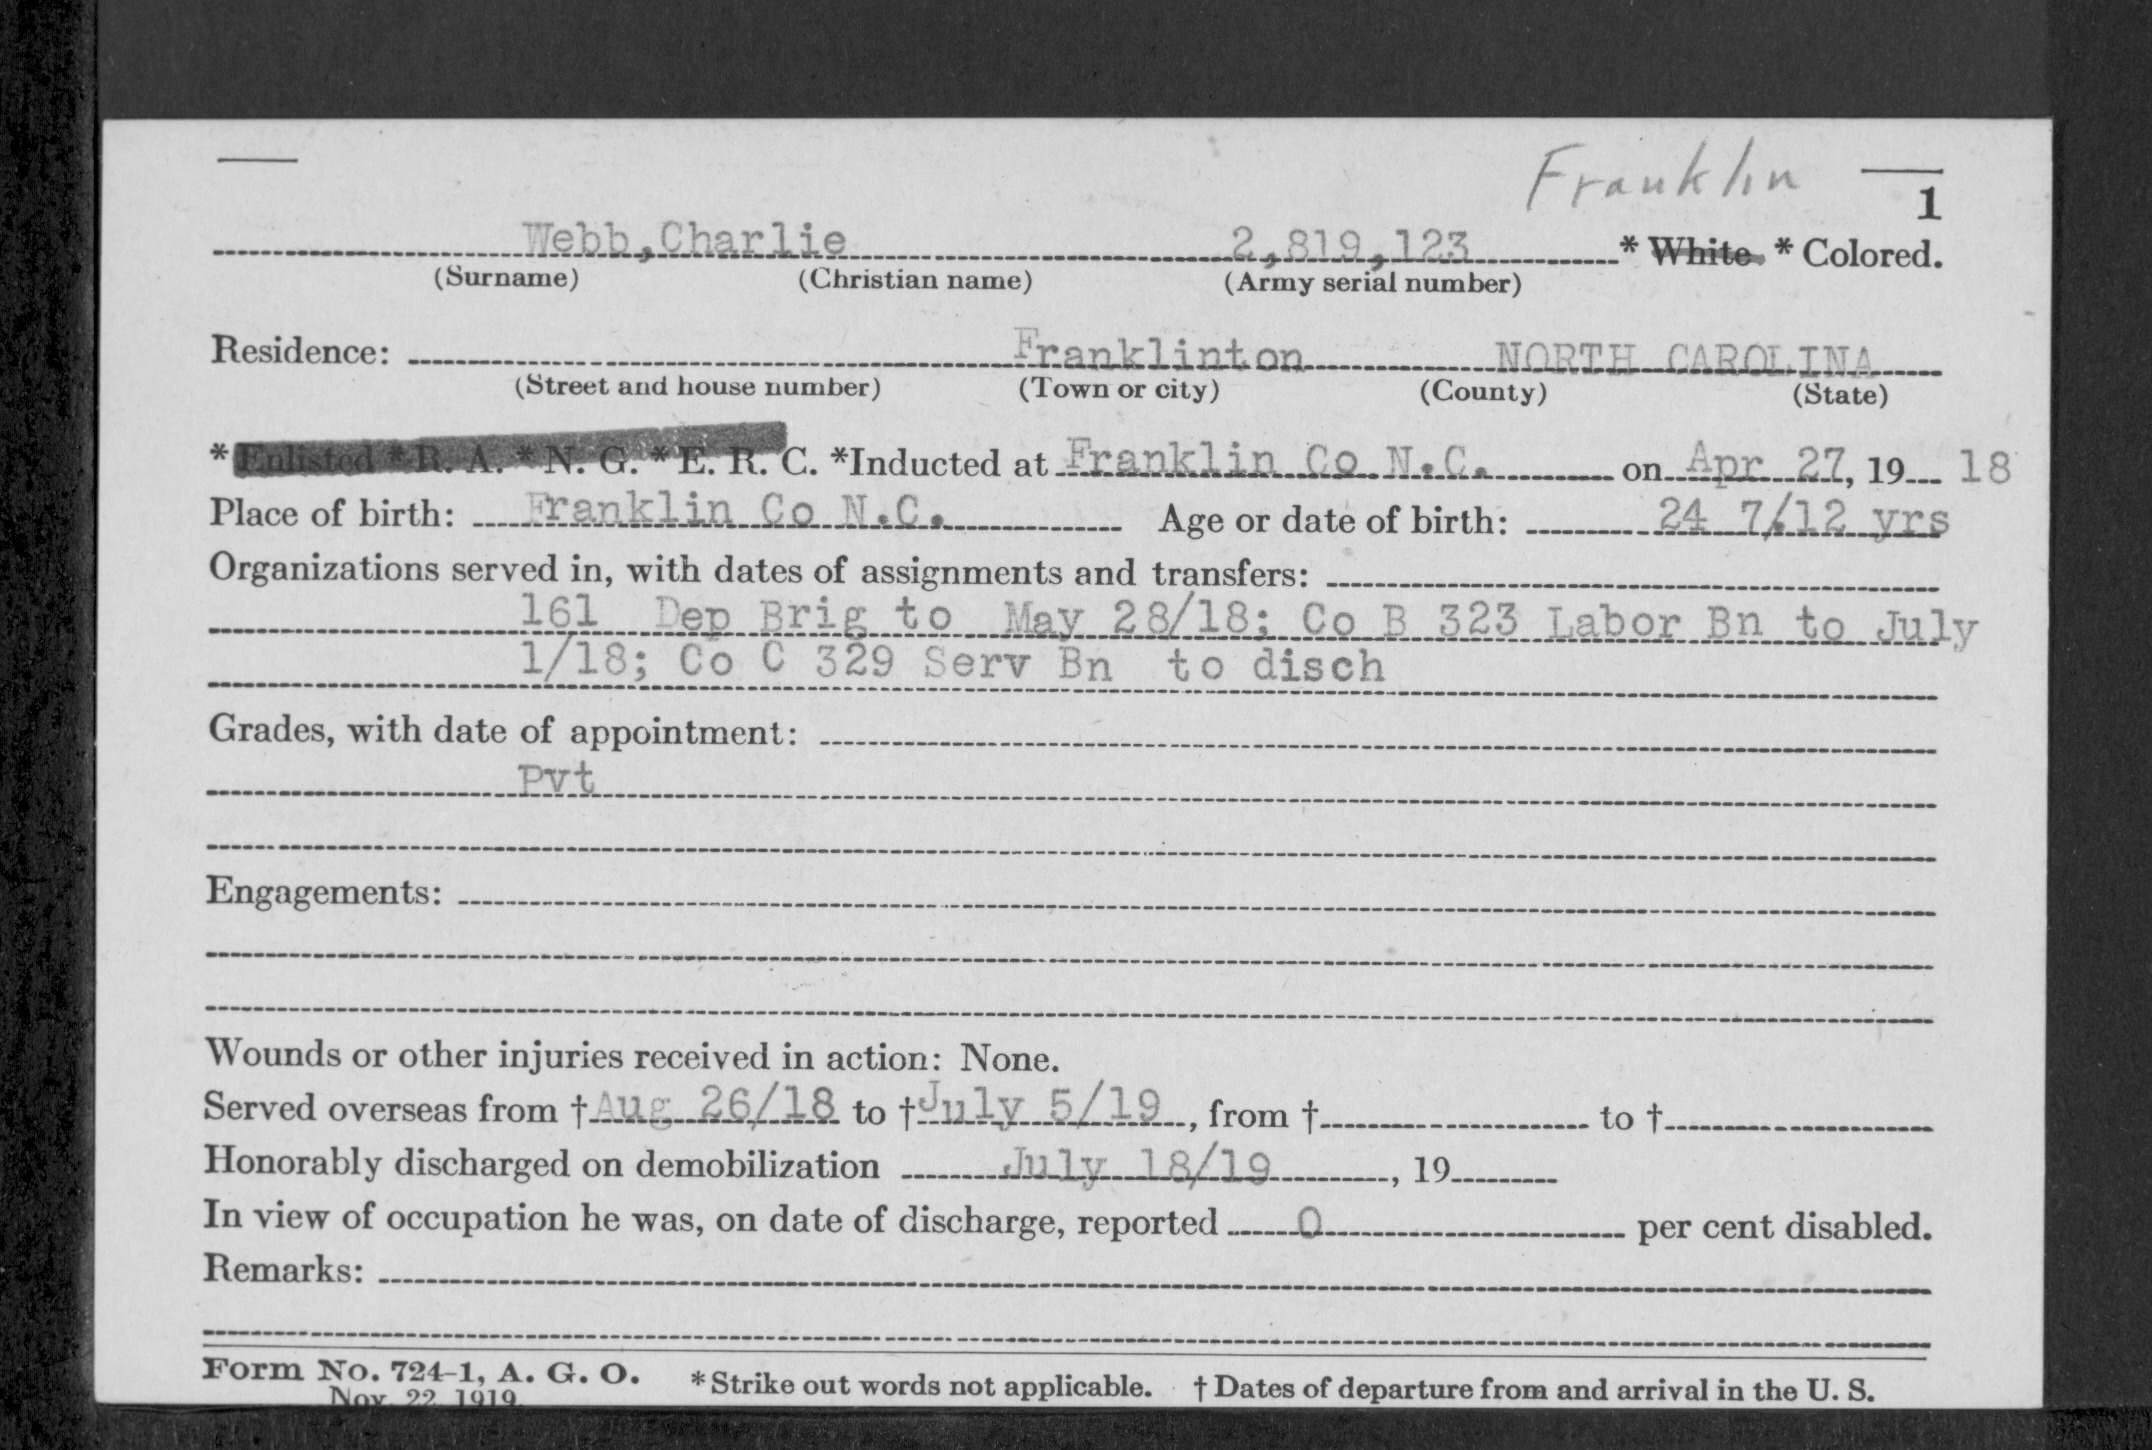 Franklin
1
Webb, Charlie 2,819,123 * White. * Colored.
(Surname) (Christian name) (Army serial number)
Residence: Franklinton NORTH CAROLINA
(Street and house number) (Town or city) (County) (State)
* Enlisted * R. A. * N. G. * E. R. C. *Inducted at Franklin Co N.C. on Apr 27, 19 18
Place of birth: Franklin Co N.C. Age or date of birth: 24 7/12 yrs
Organizations served in, with dates of assignments and transfers:
161 Dep Brig to May 28/18; Co B 323 Labor Bn to July
1/18; Co C 329 Serv Bn to disch
Grades, with date of appointment:
Pvt
Engagements:
Wounds or other injuries received in action: None.
Served overseas from † Aug 26/18 to † July 5/19, from † to †
Honorably discharged on demobilization July 18/19, 19
In view of occupation he was, on date of discharge, reported 0 per cent disabled.
Remarks:
Form No. 724-1, A. G. O. * Strike out words not applicable. † Dates of departure from and arrival in the U. S.
Nov. 22, 1919.